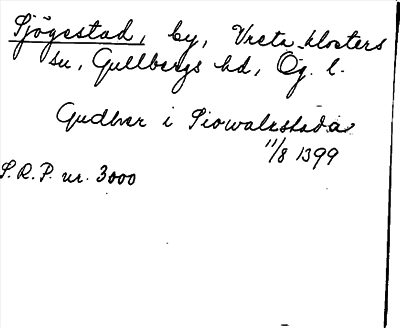 Sjögestad, by, Vreta klosters
sn, Gullbergs hd, Ög. l.
Gudhvar i Siowalxstada
11/8 1399
S.R.P. nr. 3000